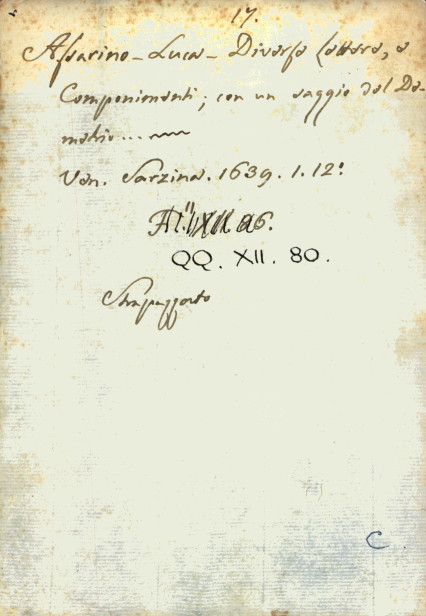 17.
Assarino - Luca - Diverse Lettere, e
Componimenti; con un saggio del De-
metrio...
Ven. Sarzina. 1639. 1. 12°
QQ. XII. 80.
Strapazzato
C.